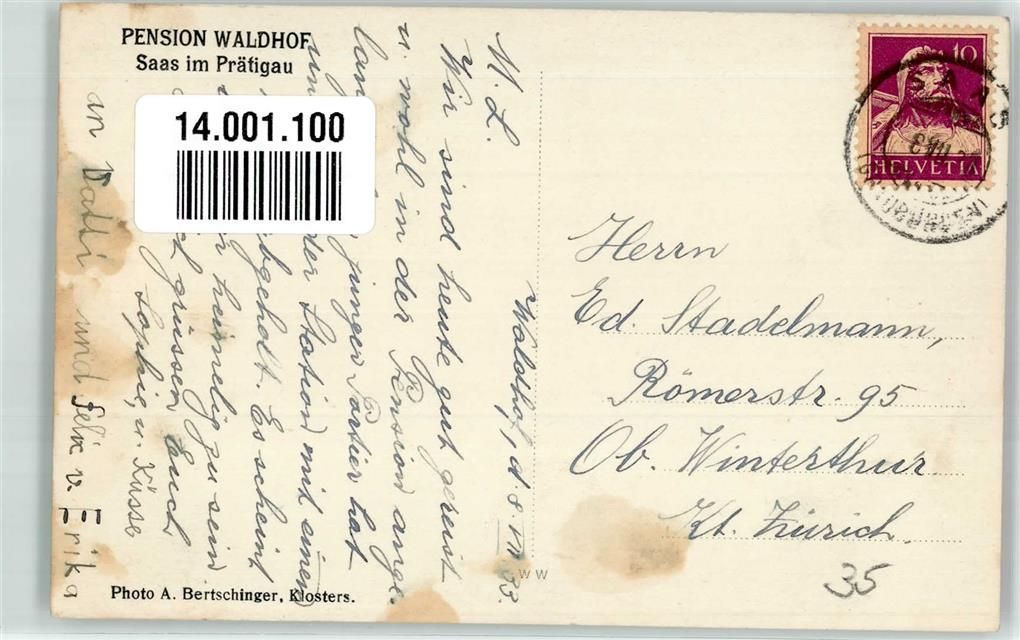 PENSION WALDHOF
Saas im Prätigau
14.001.100
10
HELVETIA
Waldhof, d 8 VII 33.
M. L.
Wir sind heute gut gereist
u. wohl in der Pension ange-
lan junger Portier hat
der Station mit einem
abgeholt. Es scheint
heimelig zu sein
grüssen Euch
Sophie, u. Küsse
an Vatti und Felix v. Erika
Herrn
Ed. Stadelmann,
Römerstr. 95
Ob. Winterthur
Kt. Zürich.
35
W W
Photo A. Bertschinger, Klosters.